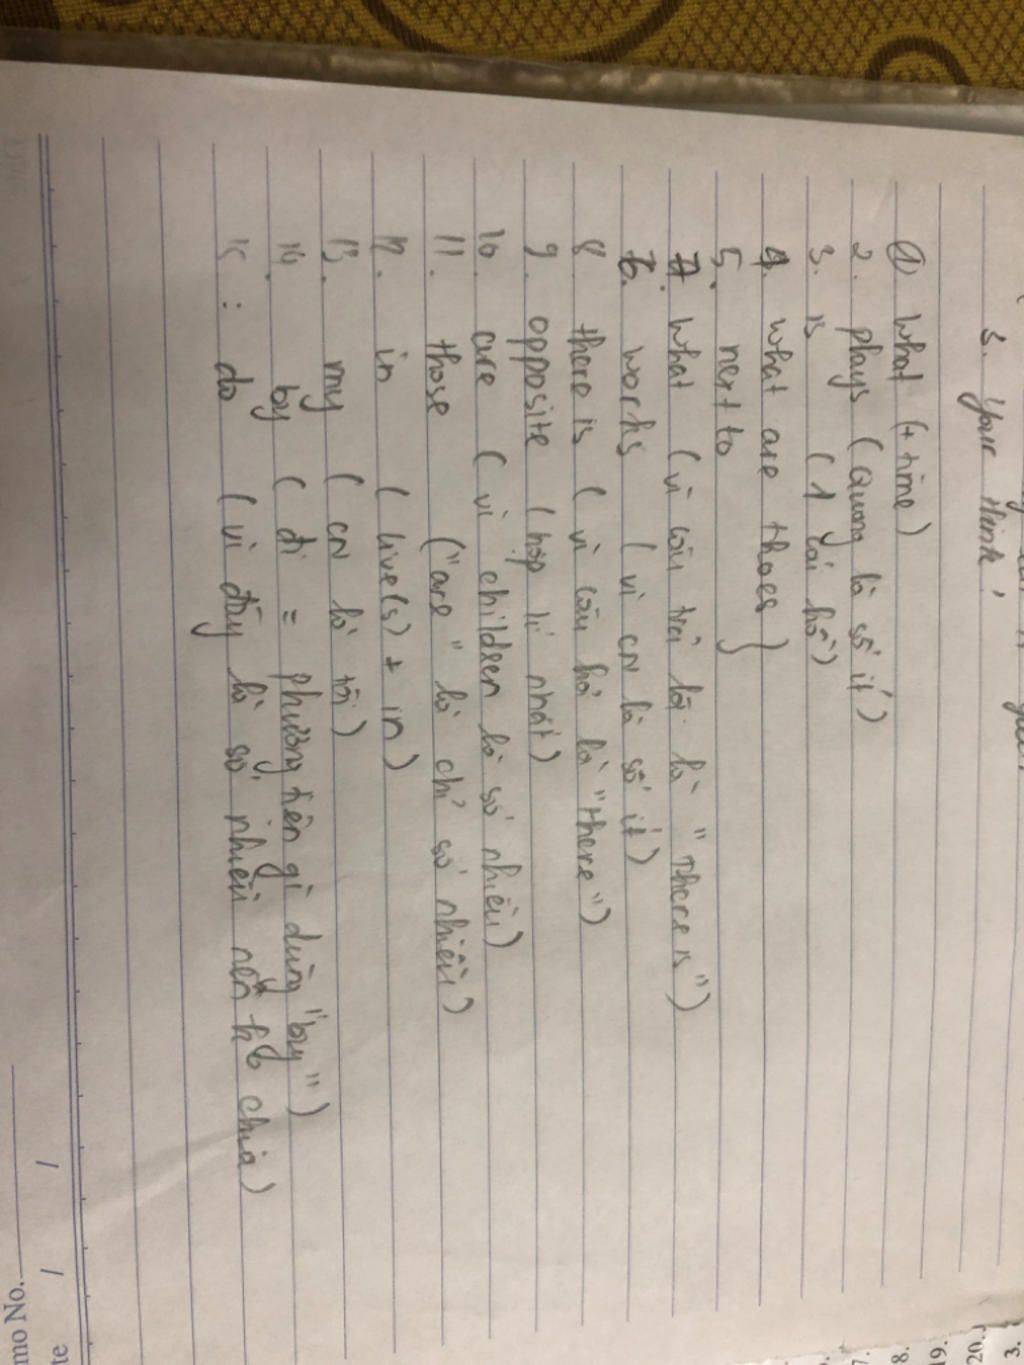 3. your think!
① What (+ time)
2. plays (Quang là số ít)
3. is (1 cái hồ)
4. what are thoes
5. next to
7. What (vì câu trả lời là "There is")
6. works (vì CN là số ít)
8 there is (vì câu hỏi là "there")
9. opposite (hợp lí nhất)
10 are (vì children là số nhiều)
11. those ("are" là chỉ số nhiều)
12. in (live(s) + in)
13. my (CN là tôi)
14. by (đi = phương tiện gì dùng "by")
15: do (vì đây là số nhiều nên kð chia)
mo No.
te / /
7.
8.
9.
20.
3.